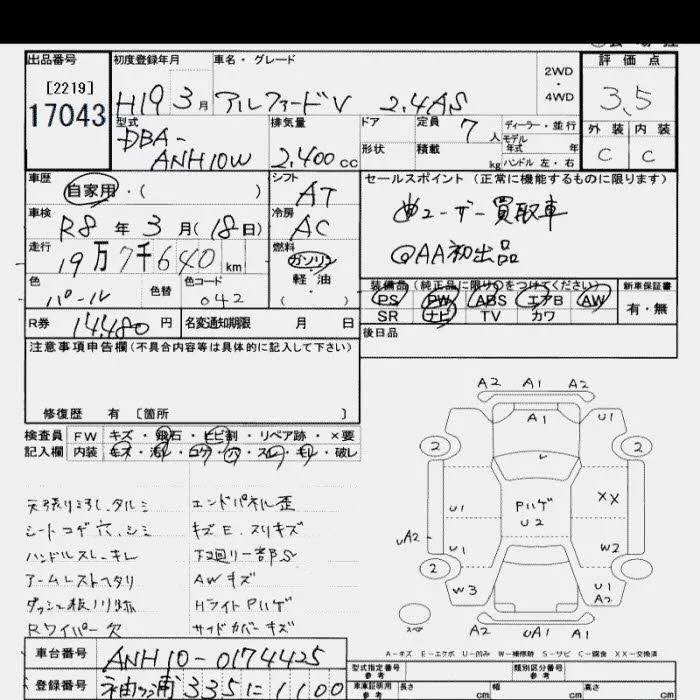 出品番号
[2219]
17043
初度登録年月
H19 3月
車名・グレード
アルファードV 2.4AS
2WD
・
4WD
評価点
3.5
外装 内装
C C
型式
DBA-
ANH10W
排気量
2,400 cc
ドア
形状
定員 7人
積載 kg
ディーラー・並行
モデル
年式 年
ハンドル 左・右
車歴
自家用・( )
シフト
AT
セールスポイント (正常に機能するものに限ります)
ユーザー買取車
QAA初出品
車検
R8年3月(18日)
冷房
AC
走行
19万7千640 km
燃料
ガソリン
軽・油
( )
色
パール
色替
色コード
042
装備品(純正品に限り○をつけてください)
PS PW ABS エアB AW
SR ナビ TV カワ
新車保証書
有・無
R券 14,480円
名変通知期限 月 日
後日品
注意事項申告欄(不具合内容等は具体的に記入して下さい)
修復歴 有 [箇所 ]
検査員 FW キズ・飛石・ヒビ割・リペア跡・×要
記入欄 内装 キズ・汚レ・コゲ・穴・スレ・キレ・破レ
天張り汚れ、タルミ
シートコゲ穴、シミ
ハンドルスレ・キレ
アームレストヘタリ
Rワイパー欠
エンドパネル歪
キズE、スリキズ
下回り一部S
AWキズ
HライトPハゲ
サイドカバーキズ
A2 A1 A2
A1
U1
2 2
U1
Pハゲ
U2
XX
UA2
U1
W2
2
W3
U1
A2
スペア
A2 UA1 A1
A-キズ E-エクボ U-凹み W-補修跡 S-サビ C-腐食 XX-交換済
車台番号
ANH10-0174425
登録番号
袖ヶ浦 335 に 1100
型式指定番号
参考
類別区分番号
参考
車庫証明用
参考
長さ cm
幅 cm
高さ cm